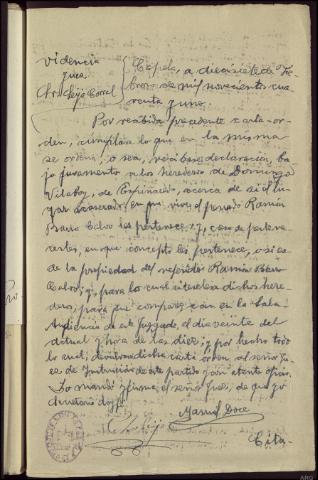 Providencia
Juez
Sr. Seijo Corral
Capela, a diecisiete de Fe-
brero de mil novecientos cua-
renta y uno.
Por recibida la precedente carta-or-
den, cumplase lo que en la misma
se ordena, o sea, recíbase declaración, ba-
jo juramento a los herederos de Domingo
Vilaboy, de Espiñaredo, acerca de si el lu-
gar acasarado en que vive el penado Ramón
Barro Calvo les pertenece, y, caso de pertene-
cerles, en que concepto les pertenece, o si es
de la propiedad del referido Ramón Barro
Calvo; y, para lo cual citense a dichos here-
deros, para que comparezcan en la Sala
Audiencia de este Juzgado, el dia veinte del
actual y hora de las diez; y, por hecho todo
lo cual, devuelvase dicha carta orden, al señor Ju-
ez de Instrucción de este partido con atento oficio.
Lo mandó y firma el señor Juez, de que yo
Secretario doy fe.
Manuel Doce
Seijo
Cita-